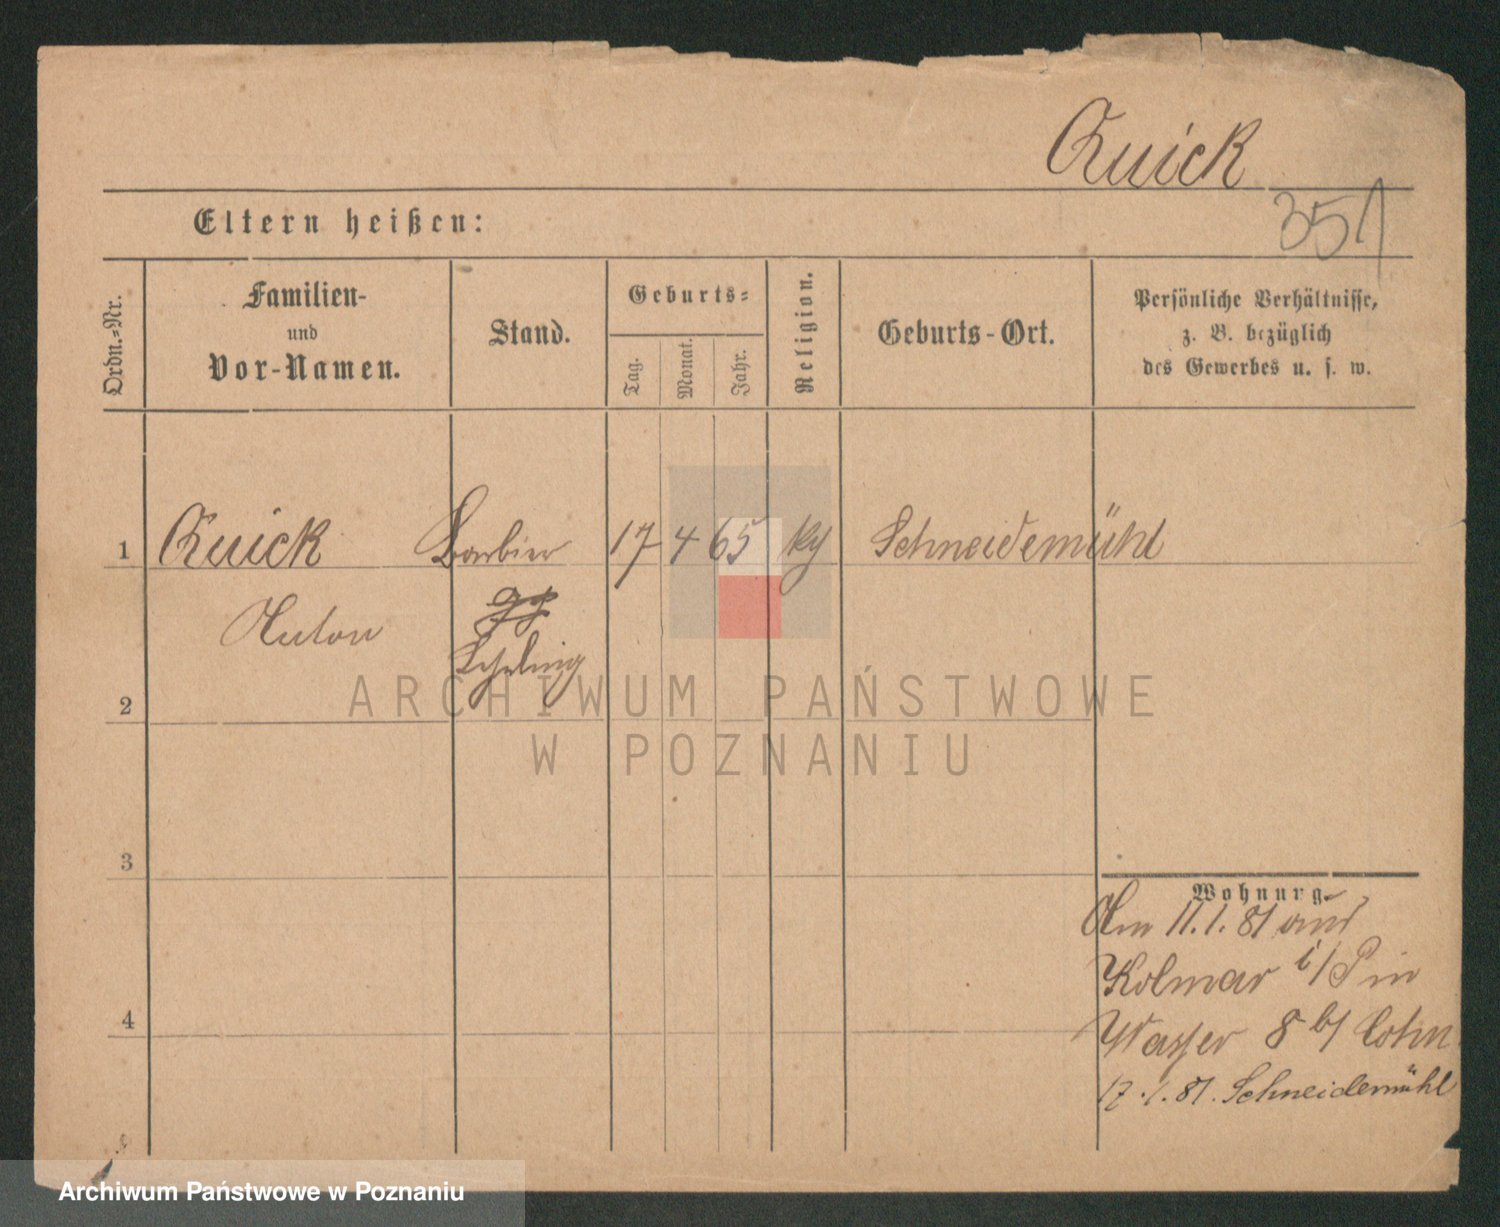 Quick
351
Eltern heißen:
Ordn.-Nr.
Familien-
und
Vor-Namen.
Stand.
Geburts-
Tag.
Monat.
Jahr.
Religion.
Geburts-Ort.
Persönliche Verhältnisse,
z. B. bezüglich
des Gewerbes u. s. w.
1 Quick Barbier 17 4 65 Schneidemühl
Anton
2
3
4
Wohnung.
Am 11.1.81 aus
Kolmar i/P in
Wasser 8 b/ Cohn
17.1.81. Schneidemühl
ARCHIWUM PAŃSTWOWE
W POZNANIU
Archiwum Państwowe w Poznaniu